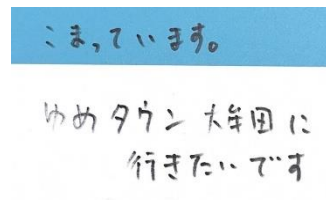 こまっています。
ゆめタウン大牟田に
行きたいです